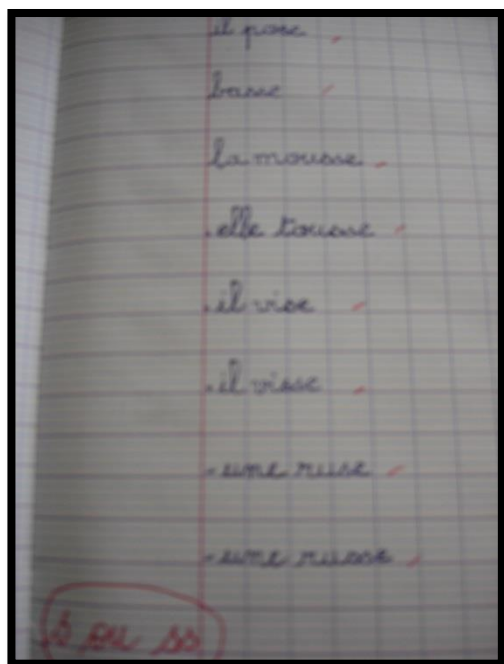 il pose
basse
la mousse
.elle tousse
.il vise
.il visse
-une ruse
-une russe
s ou ss